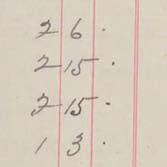 2 6 .
2 15 .
2 15 .
1 3 .